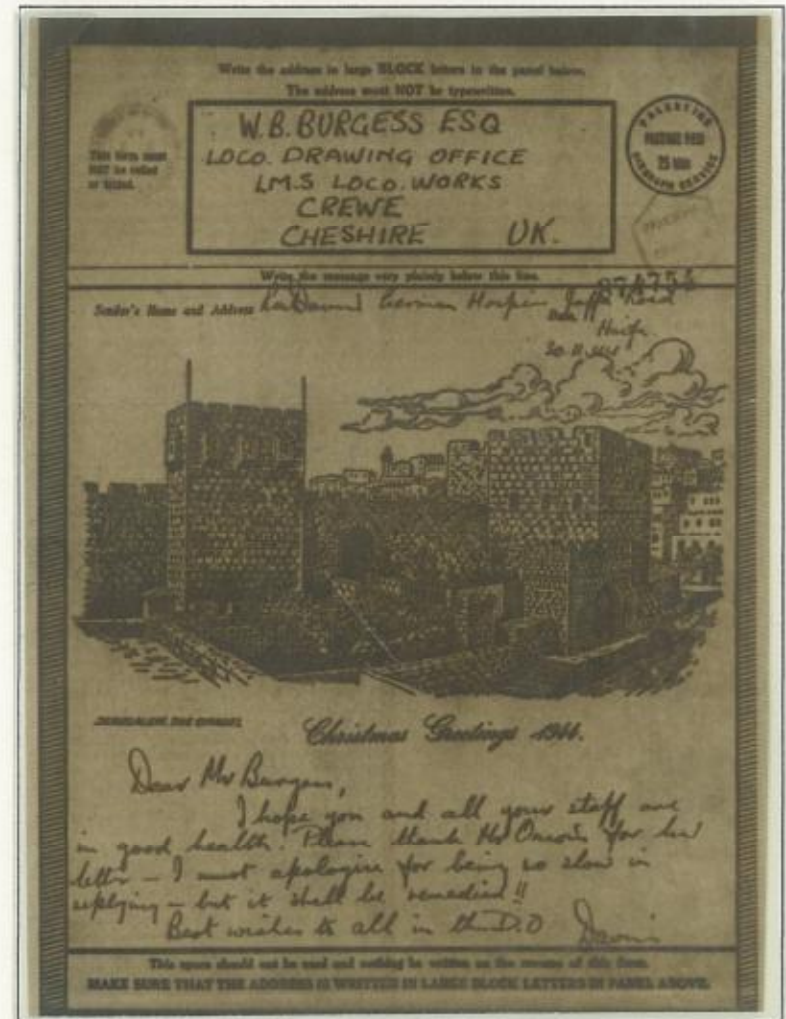 Write the address in large BLOCK letters in the panel below.
The address must NOT be typewritten.
This form must
NOT be rolled
or folded.
W.B. BURGESS ESQ
LOCO. DRAWING OFFICE
LMS LOCO. WORKS
CREWE
CHESHIRE UK.
PALESTINE
POSTAGE PAID
25 Mils
AIRGRAPH SERVICE
Write the message very plainly below this line.
Sender's Name and Address German Jaffa Road
Date Haifa
30.11.
JERUSALEM, THE CITADEL
Christmas Greetings 1944.
Dear Mr Burgess,
I hope you and all your staff are
in good health. Please thank for her
letter - I must apologise for being so slow in
replying - but it shall be remedied!!
Best wishes to all in the D.O
This space should not be used and nothing be written on the reverse of this form.
MAKE SURE THAT THE ADDRESS IS WRITTEN IN LARGE BLOCK LETTERS IN PANEL ABOVE.